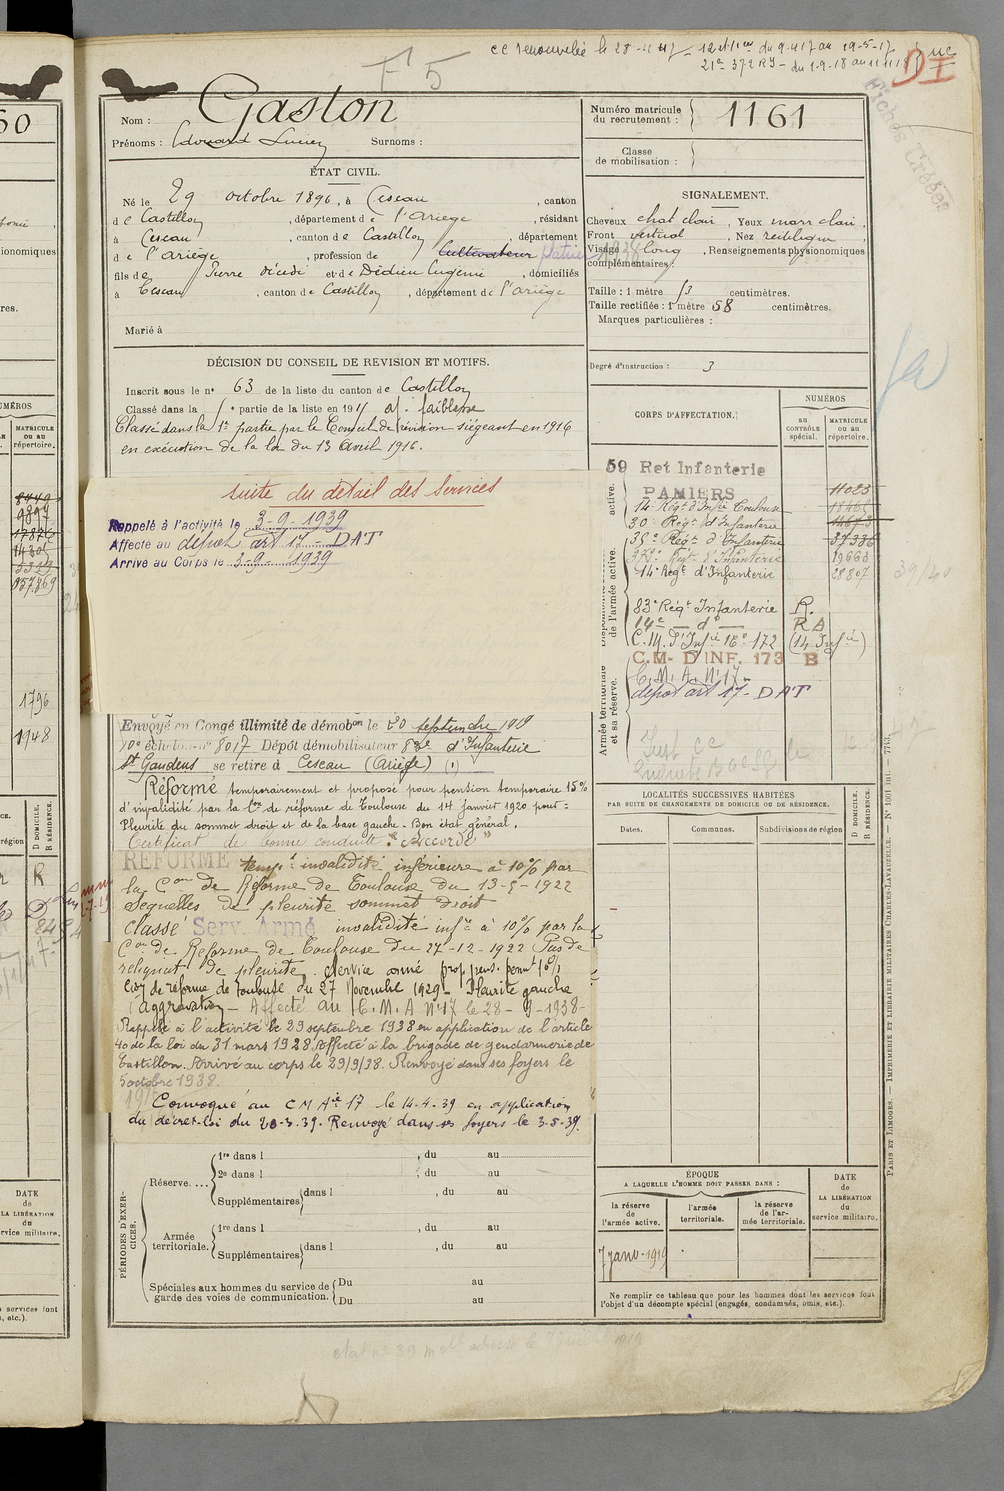 cc renouvelée le 28-11-47 - 12 et 1 du 9-4 17 au 19-5-17
21e 372 RY - du 1-9-18 au 11 11 18
F5
DI
Nom : Gaston
Prénoms : Edouard Lucien Surnoms :
Numéro matricule du recrutement : 1161
Classe de mobilisation :
ÉTAT CIVIL.
Né le 29 octobre 1896, à Cescau, canton
de Castillon, département de l'Ariège, résidant
à Cescau, canton de Castillon, département
de l'Ariège, profession de Cultivateur
fils de Pierre décédé et de Dédieu Eugénie, domiciliés
à Cescau, canton de Castillon, département de l'Ariège
Marié à
SIGNALEMENT.
Cheveux chat clair, Yeux marr clair,
Front vertical, Nez rectiligne,
Visage long, Renseignements physionomiques
complémentaires :
Taille : 1 mètre 53 centimètres.
Taille rectifiée : 1 mètre 58 centimètres.
Marques particulières :
Degré d'instruction : 3
DÉCISION DU CONSEIL DE REVISION ET MOTIFS.
Inscrit sous le n° 63 de la liste du canton de Castillon
Classé dans la 5e partie de la liste en 1915 aj. faiblesse
Classé dans la 1re partie par le Conseil de révision siégeant en 1916
en exécution de la loi du 13 Avril 1916.
suite du détail des services
Rappelé à l'activité le 3-9-1939
Affecté au dépôt art 17 - DAT
Arrivé au Corps le 3-9-1939
Envoyé en Congé illimité de démobon le 20 septembre 1919
10e échelon n° 8017 Dépôt démobilisateur 83e d'Infanterie
St Gaudens se retire à Cescau (Ariège) (1)
Réformé temporairement et proposé pour pension temporaire 15%
d'invalidité par la Con de réforme de Toulouse du 14 janvier 1920 pour :
Pleurite du sommet droit et de la base gauche. Bon état général.
Certificat de bonne conduite : "Accordé"
RÉFORMÉ tempt invalidité inférieure à 10% par
la Con de Réforme de Toulouse du 13-5-1922
Sequelles de pleurite sommet droit
classé Serv. Armé invalidité infre à 10% par la
Con de Reforme de Toulouse du 27-12-1922 Pas de
reliquat de pleurite. Service armé prop. pens. permt 10%
Con de réforme de Toulouse du 27 Novembre 1929 - Pleurite gauche
(aggravation) - Affecté au C.M.A N°17 le 28-9-1938-
Rappelé à l'activité le 29 septembre 1938 en application de l'article
40 de la loi du 31 mars 1928. Affecté à la brigade de gendarmerie de
Castillon. Arrivé au corps le 29/9/38. Renvoyé dans ses foyers le
5 octobre 1938.
Convoqué au CM Aie 17 le 14-4-39 en application
du décret-loi du 20-3-39. Renvoyé dans ses foyers le 3-5-39.
CORPS D'AFFECTATION.
NUMÉROS
au CONTRÔLE spécial.
MATRICULE ou au répertoire.
59 Ret Infanterie 11023
PAMIERS
14 Régt d'Infie Toulouse
30e Régt d'Infanterie
35e Régt d'Infanterie 37336
372e Régt d'Infanterie 19663
14 Régt d'Infanterie 28807
39/40
83e Régt Infanterie R.
14e — do — RA
C.M. d'Infie 16e 172 (14 Infie)
C.M. D'INF. 173 B
C.M.A. N°17 -
dépôt art 17 - DAT
de l'armée active.
Armée territoriale et sa réserve.
LOCALITÉS SUCCESSIVES HABITÉES
PAR SUITE DE CHANGEMENTS DE DOMICILE OU DE RÉSIDENCE.
Dates. Communes. Subdivisions de région
D DOMICILE. R RÉSIDENCE.
PÉRIODES D'EXERCICES.
Réserve....
1re dans l , du au
2e dans l , du au
Supplémentaires dans l , du au
Armée territoriale.
1re dans l , du au
Supplémentaires dans l , du au
Spéciales aux hommes du service de garde des voies de communication.
Du au
Du au
ÉPOQUE
A LAQUELLE L'HOMME DOIT PASSER DANS :
la réserve de l'armée active.
l'armée territoriale.
la réserve de l'armée territoriale.
DATE de LA LIBÉRATION du service militaire.
7 janv. 1919
Ne remplir ce tableau que pour les hommes dont les services font
l'objet d'un décompte spécial (engagés, condamnés, omis, etc.).
PARIS ET LIMOGES. — IMPRIMERIE ET LIBRAIRIE MILITAIRES CHARLES-LAVAUZELLE. — N° 1001 int. — 7743.